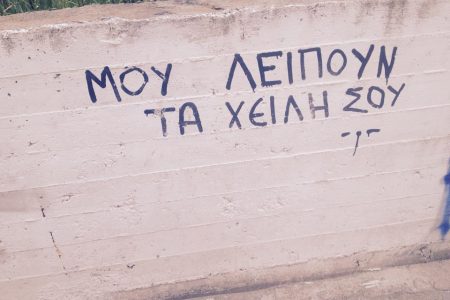 ΜΟΥ ΛΕΙΠΟΥΝ
ΤΑ ΧΕΙΛΗ ΣΟΥ